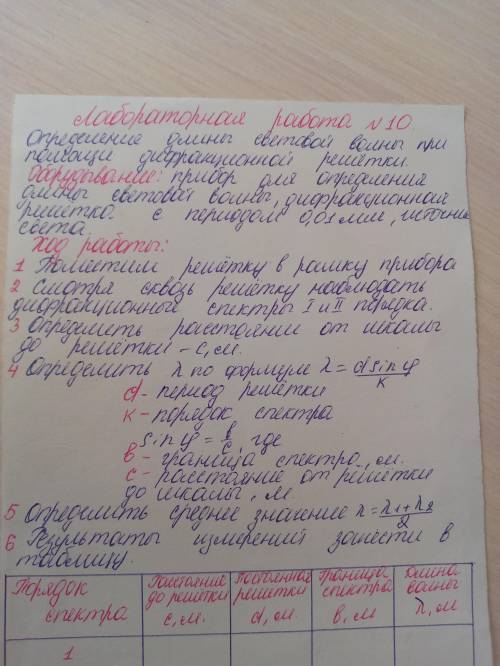 Лабораторная работа №10.
Определение длины световой волны при
помощи дифракционной решётки.
Оорудование: прибор для определения
длины световой волны, дифракционная
решётка с периодом 0,01 мм, источник
света.
Ход работы:
1 Поместим решётку в рамку прибора
2 Смотря сквозь решётку наблюдать
дифракционные спектры I и II порядка.
3 Определить расстояние от шкалы
до решётки - с, м.
4 Определить λ по формуле λ = d sin φ / к
d - период решётки
к - порядок спектра
sin φ = в/с, где
в - граница спектра, м.
с - расстояние от решётки
до шкалы, м.
5 Определить среднее значение λ = λ1+λ2 / 2
6 Результаты измерений занести в
таблицу.
Порядок спектра
Расстояние до решётки с, м.
Постоянная решётки d, м.
Граница спектра в, м
Длина волны λ, м
1